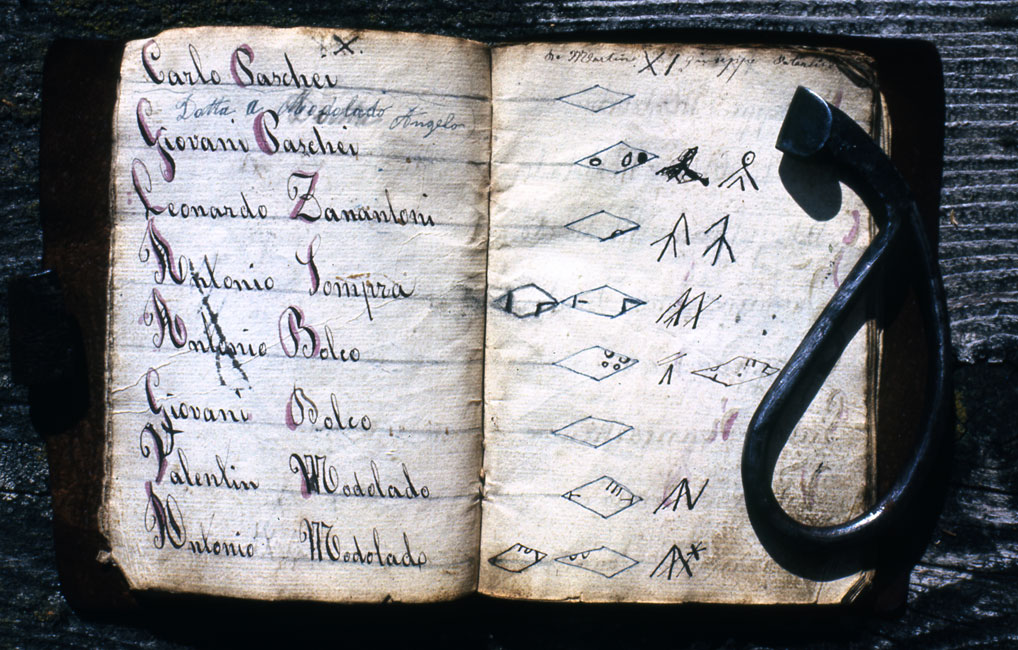 X.
Carlo Paschei
Datta a Modolado Angelo
Giovani Paschei
Leonardo Zanantoni
Antonio Sompra
Antonio Bolco
Giovani Bolco
Valentin Modolado
Antonio Modolado
Martin X 1